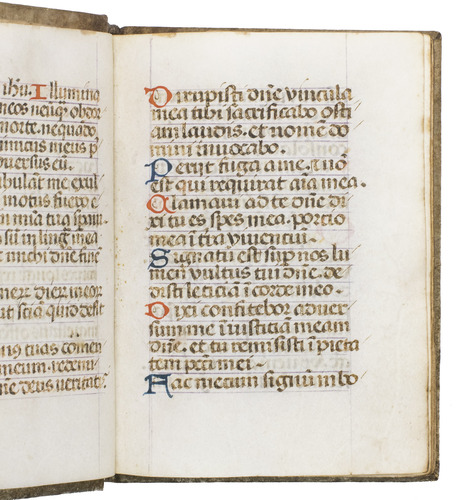 ihu. Illumina
meos neuq; obdor
morte. nequado
inimicus meus p
duersus eū.
ibulāt me exul
motus fuero e
sū in linguā mea
t michi dñe finē
mei
mnis tuas comen
meum. redemi
mñe deus veritat̄.
Dirupisti dñe vincula
mea tibi sacrificabo osti
am laudis. et nomē do
mini īuocabo.
Perijt fuga a me. & nō
est qui requirat aīa mea.
Clamaui ad te dñe di
xi tu es spes mea. portio
mea ī tra viuentiū.
Signatū est sup nos lu
men vultus tui dñe. de
disti leticiā ī corde meo.
Dixi confitebor aduer
sum me īiusticiā meam
dñe. et tu remisisti īpieta
tem peccti mei.
Fac mecum signū in bo